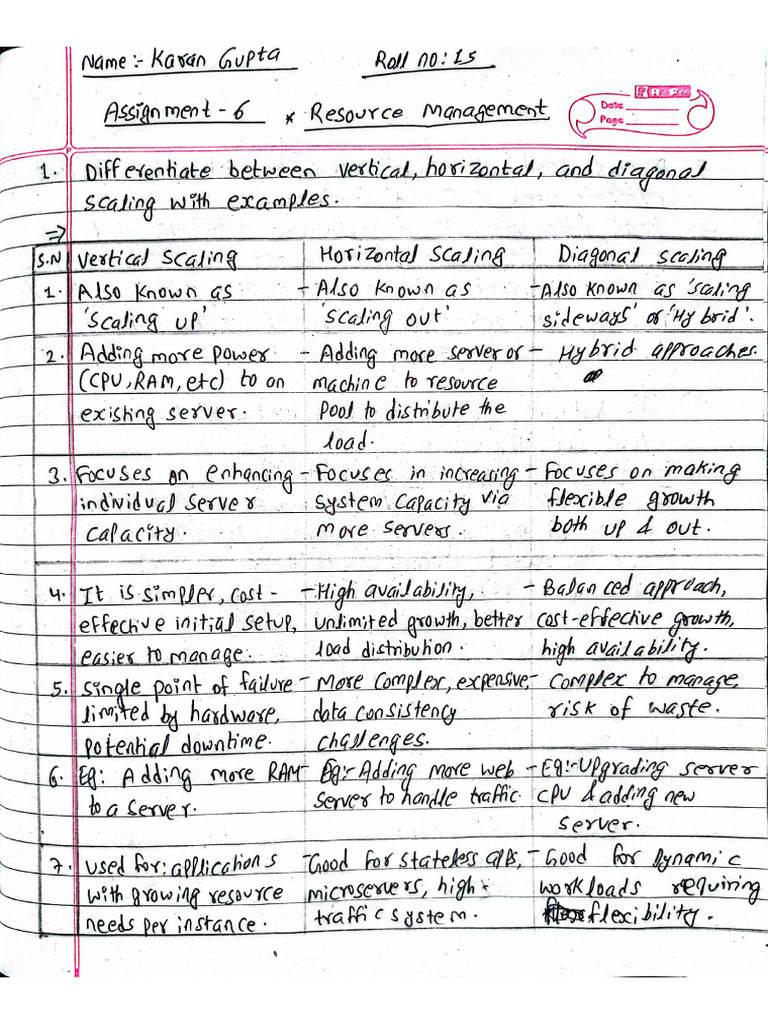 Name:- Karan Gupta Roll no: 15
Assignment - 6 * Resource Management
Date
Page
1. Differentiate between vertical, horizontal, and diagonal
scaling with examples.
=>
S.N Vertical Scaling Horizontal Scaling Diagonal Scaling
1. Also known as - Also known as - Also known as 'scaling
'scaling up' 'scaling out' sideways' or 'Hybrid'.
2. Adding more power - Adding more server or - Hybrid approaches.
(CPU, RAM, etc) to on machine to resource
existing server. pool to distribute the
load.
3. Focuses on enhancing - Focuses in increasing - Focuses on making
individual server system capacity via flexible growth
capacity. more servers. both up & out.
4. It is simpler, cost- - High availability, - Balanced approach,
effective initial setup, unlimited growth, better cost-effective growth,
easier to manage. load distribution. high availability.
5. Single point of failure - More complex, expensive, - Complex to manage,
limited by hardware, data consistency risk of waste.
potential downtime. challenges.
6. Eg: Adding more RAM - Eg:- Adding more web - Eg:- Upgrading server
to a server. server to handle traffic. CPU & adding new
server.
7. Used for: applications - Good for stateless apps, - Good for Dynamic
with growing resource microservers, high workloads requiring
needs per instance. traffic system. flexibility.